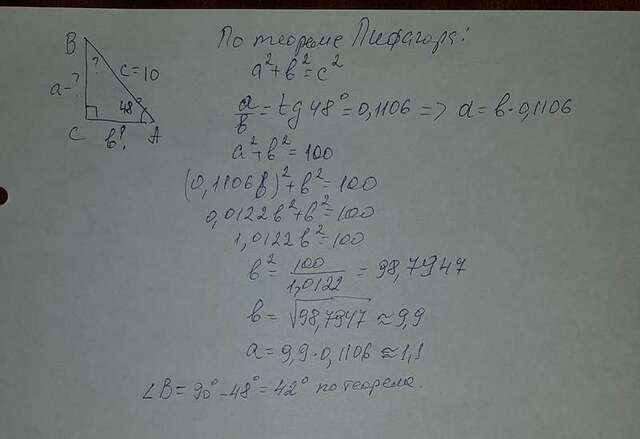 По теореме Пифагора:
B
?
a-?
c=10
48°
C
b?
A
a²+b²=c²
a/b = tg 48° = 0,1106 => a = b·0,1106
a²+b²=100
(0,1106b)²+b²=100
0,0122b²+b²=100
1,0122b²=100
b² = 100/1,0122 = 98,7947
b = √98,7947 ≈ 9,9
a = 9,9·0,1106 ≈ 1,1
∠B = 90° - 48° = 42° по теорема.